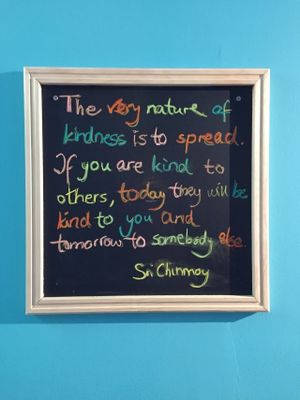 The very nature of
kindness is to spread.
If you are kind to
others, today they will be
kind to you and
tomorrow to somebody else.
Sri Chinmoy